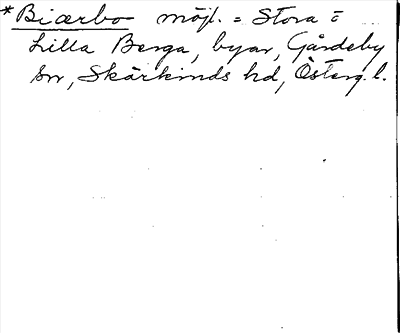 *Biærbo möjl. = Stora o
Lilla Berga, byar, Gårdeby
sn, Skärkinds hd, Österg. l.